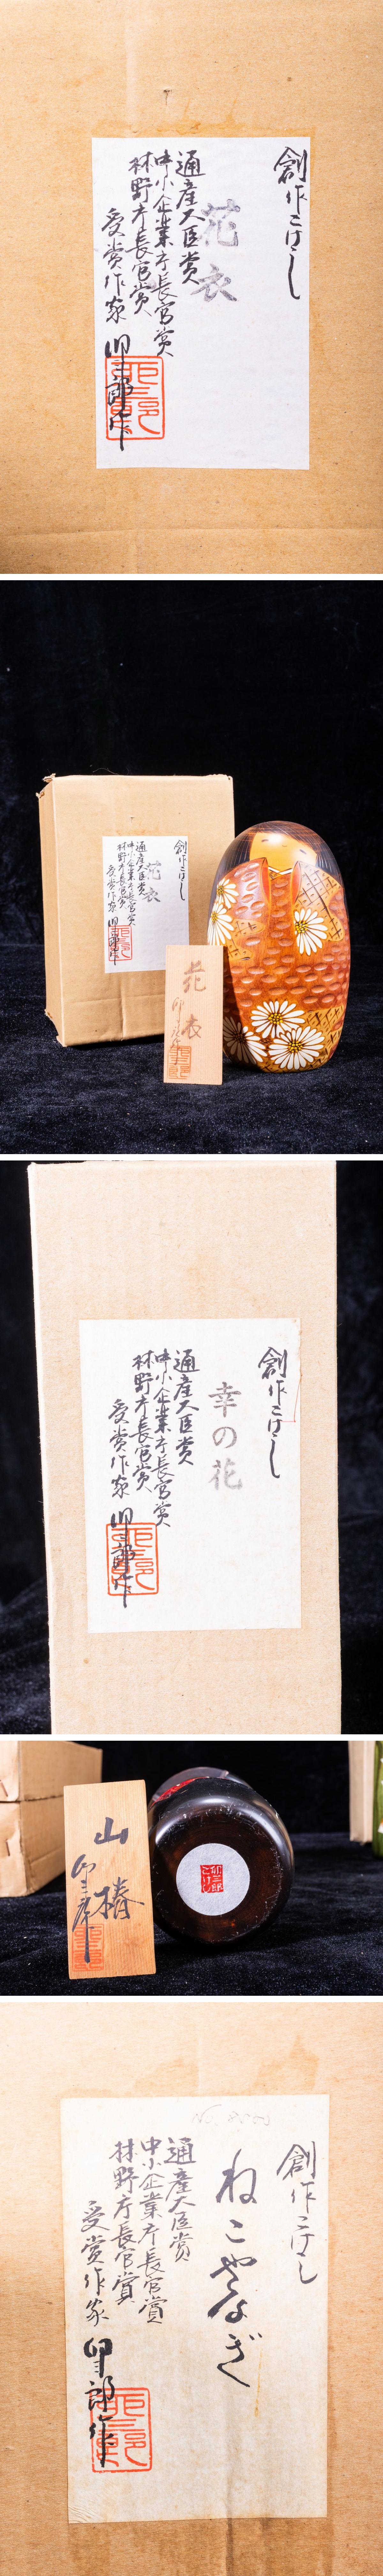 創作こけし
花衣
通産大臣賞
中小企業庁長官賞
林野庁長官賞
受賞作家 卯三郎作
創作こけし
花衣
通産大臣賞
中小企業庁長官賞
林野庁長官賞
受賞作家 卯三郎作
花衣
卯三郎
創作こけし
幸の花
通産大臣賞
中小企業庁長官賞
林野庁長官賞
受賞作家 卯三郎作
山椿
卯三郎
卯三郎
こけし
No.
創作こけし
ねこやなぎ
通産大臣賞
中小企業庁長官賞
林野庁長官賞
受賞作家 卯三郎作